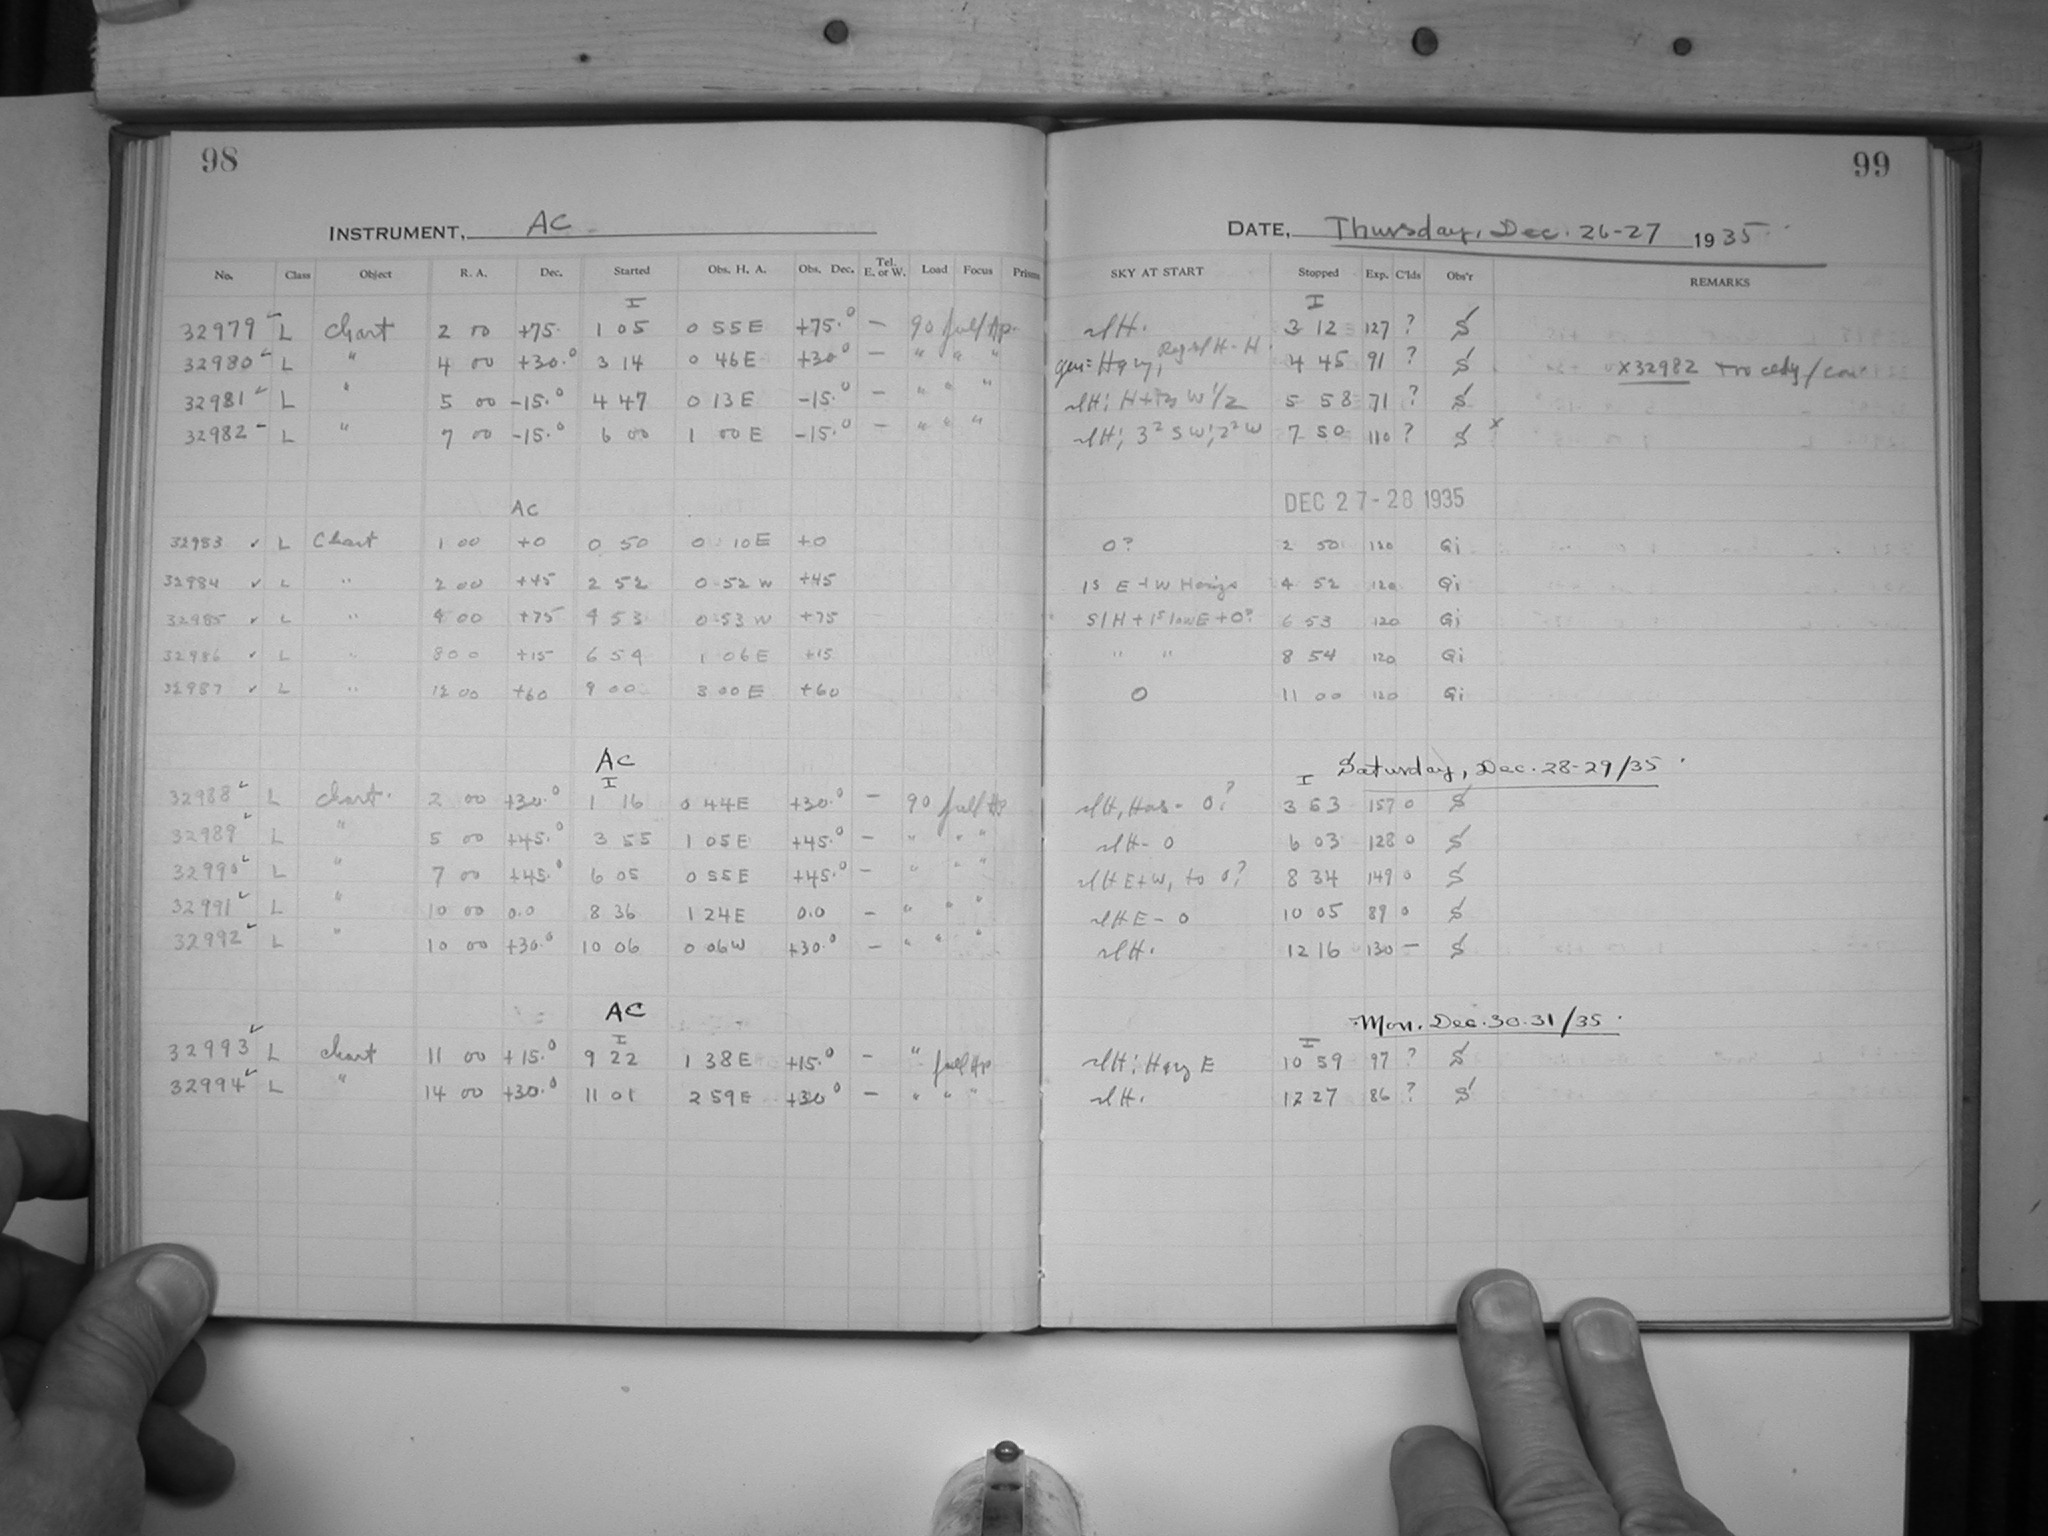 98
INSTRUMENT, AC
No. Class Object R. A. Dec. Started Obs. H. A. Obs. Dec. Tel. E. or W. Load Focus Prisms
I
32979 L Chart 2 00 +75. 1 05 0 55 E +75.° — 90 full Ap.
32980 L " 4 00 +30.° 3 14 0 46 E +30° — " " "
32981 L " 5 00 -15.° 4 47 0 13 E -15.° — " " "
32982 L " 7 00 -15.° 6 00 1 00 E -15.° — " " "
AC
32983 L Chart 1 00 +0 0 50 0 10 E +0
32984 L " 2 00 +45 2 52 0 52 W +45
32985 L " 4 00 +75 4 53 0 53 W +75
32986 L " 8 00 +15 6 54 1 06 E +15
32987 L " 12 00 +60 9 00 3 00 E +60
AC
I
32988 L chart. 2 00 +30.° 1 16 0 44 E +30.° — 90 full Ap
32989 L " 5 00 +45.° 3 55 1 05 E +45.° — " " "
32990 L " 7 00 +45.° 6 05 0 55 E +45.° — " " "
32991 L " 10 00 0.0 8 36 1 24 E 0.0 — " " "
32992 L " 10 00 +30.° 10 06 0 06 W +30.° — " " "
AC
I
32993 L chart 11 00 +15.° 9 22 1 38 E +15.° — " full Ap
32994 L " 14 00 +30.° 11 01 2 59 E +30° — " " "
99
DATE, Thursday, Dec. 26-27 1935
SKY AT START Stopped Exp. C'lds Obs'r REMARKS
I
slH. 3 12 127 ? S
Hazy, slH - H. 4 45 91 ? S x32982
slH; W 1/2 5 58 71 ? S
slH; 3² SW; 2² W 7 50 110 ? S x
DEC 27-28 1935
0? 2 50 120 Gi
1S E + W Horizs 4 52 120 Gi
S/H + 1S low E + 0? 6 53 120 Gi
" " 8 54 120 Gi
0 11 00 120 Gi
Saturday, Dec. 28-29/35.
I
slH, - 0? 3 53 157 0 S
slH - 0 6 03 128 0 S
slH E+W, to 0? 8 34 149 0 S
slH E - 0 10 05 89 0 S
slH. 12 16 130 — S
Mon. Dec. 30.31/35.
I
slH; Hazy E 10 59 97 ? S
slH. 12 27 86 ? S